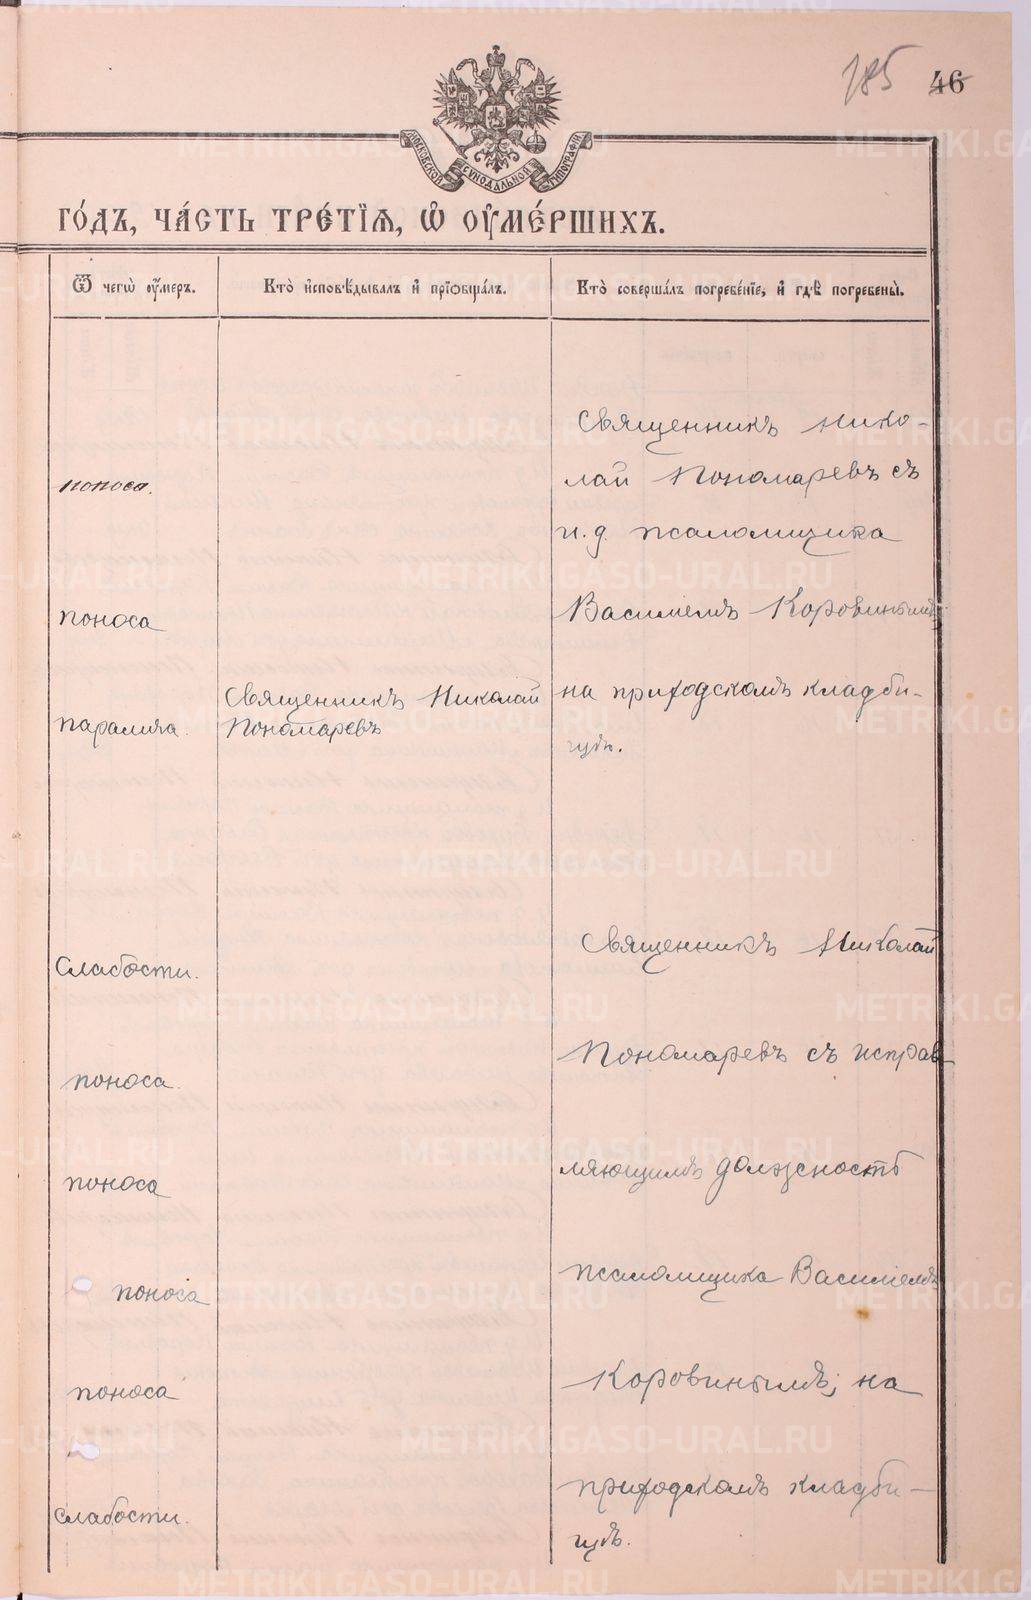 185 46
МОСКОВСКОЙ СУНОДАЛЬНОЙ ТИПОГРАФІИ.
ГО́ДЪ, ЧА́СТЬ ТРЕ́ТІѦ, Ѡ҆ ОУ҆МЕ́РШИХЪ.
Ѿ чегѡ̀ оу҆́меръ.
Кто̀ и҆сповѣ́дывалъ и҆ прїѻбща́лъ.
Кто̀ соверша́лъ погребе́нїе, и҆ гдѣ̀ погребены̀.
поноса.
Священникъ Нико-
лай Пономаревъ съ
и.д. псаломщика
поноса
Василіемъ Коровинымъ,
на приходскомъ кладби-
щѣ.
паралича.
Священникъ Николай
Пономаревъ
слабости.
Священникъ Николай
поноса.
Пономаревъ съ исправ
поноса
ляющимъ должность
поноса
псаломщика Василіемъ
поноса
Коровинымъ; на
слабости.
приходскомъ кладби-
щѣ.
METRIKI.GASO-URAL.RU